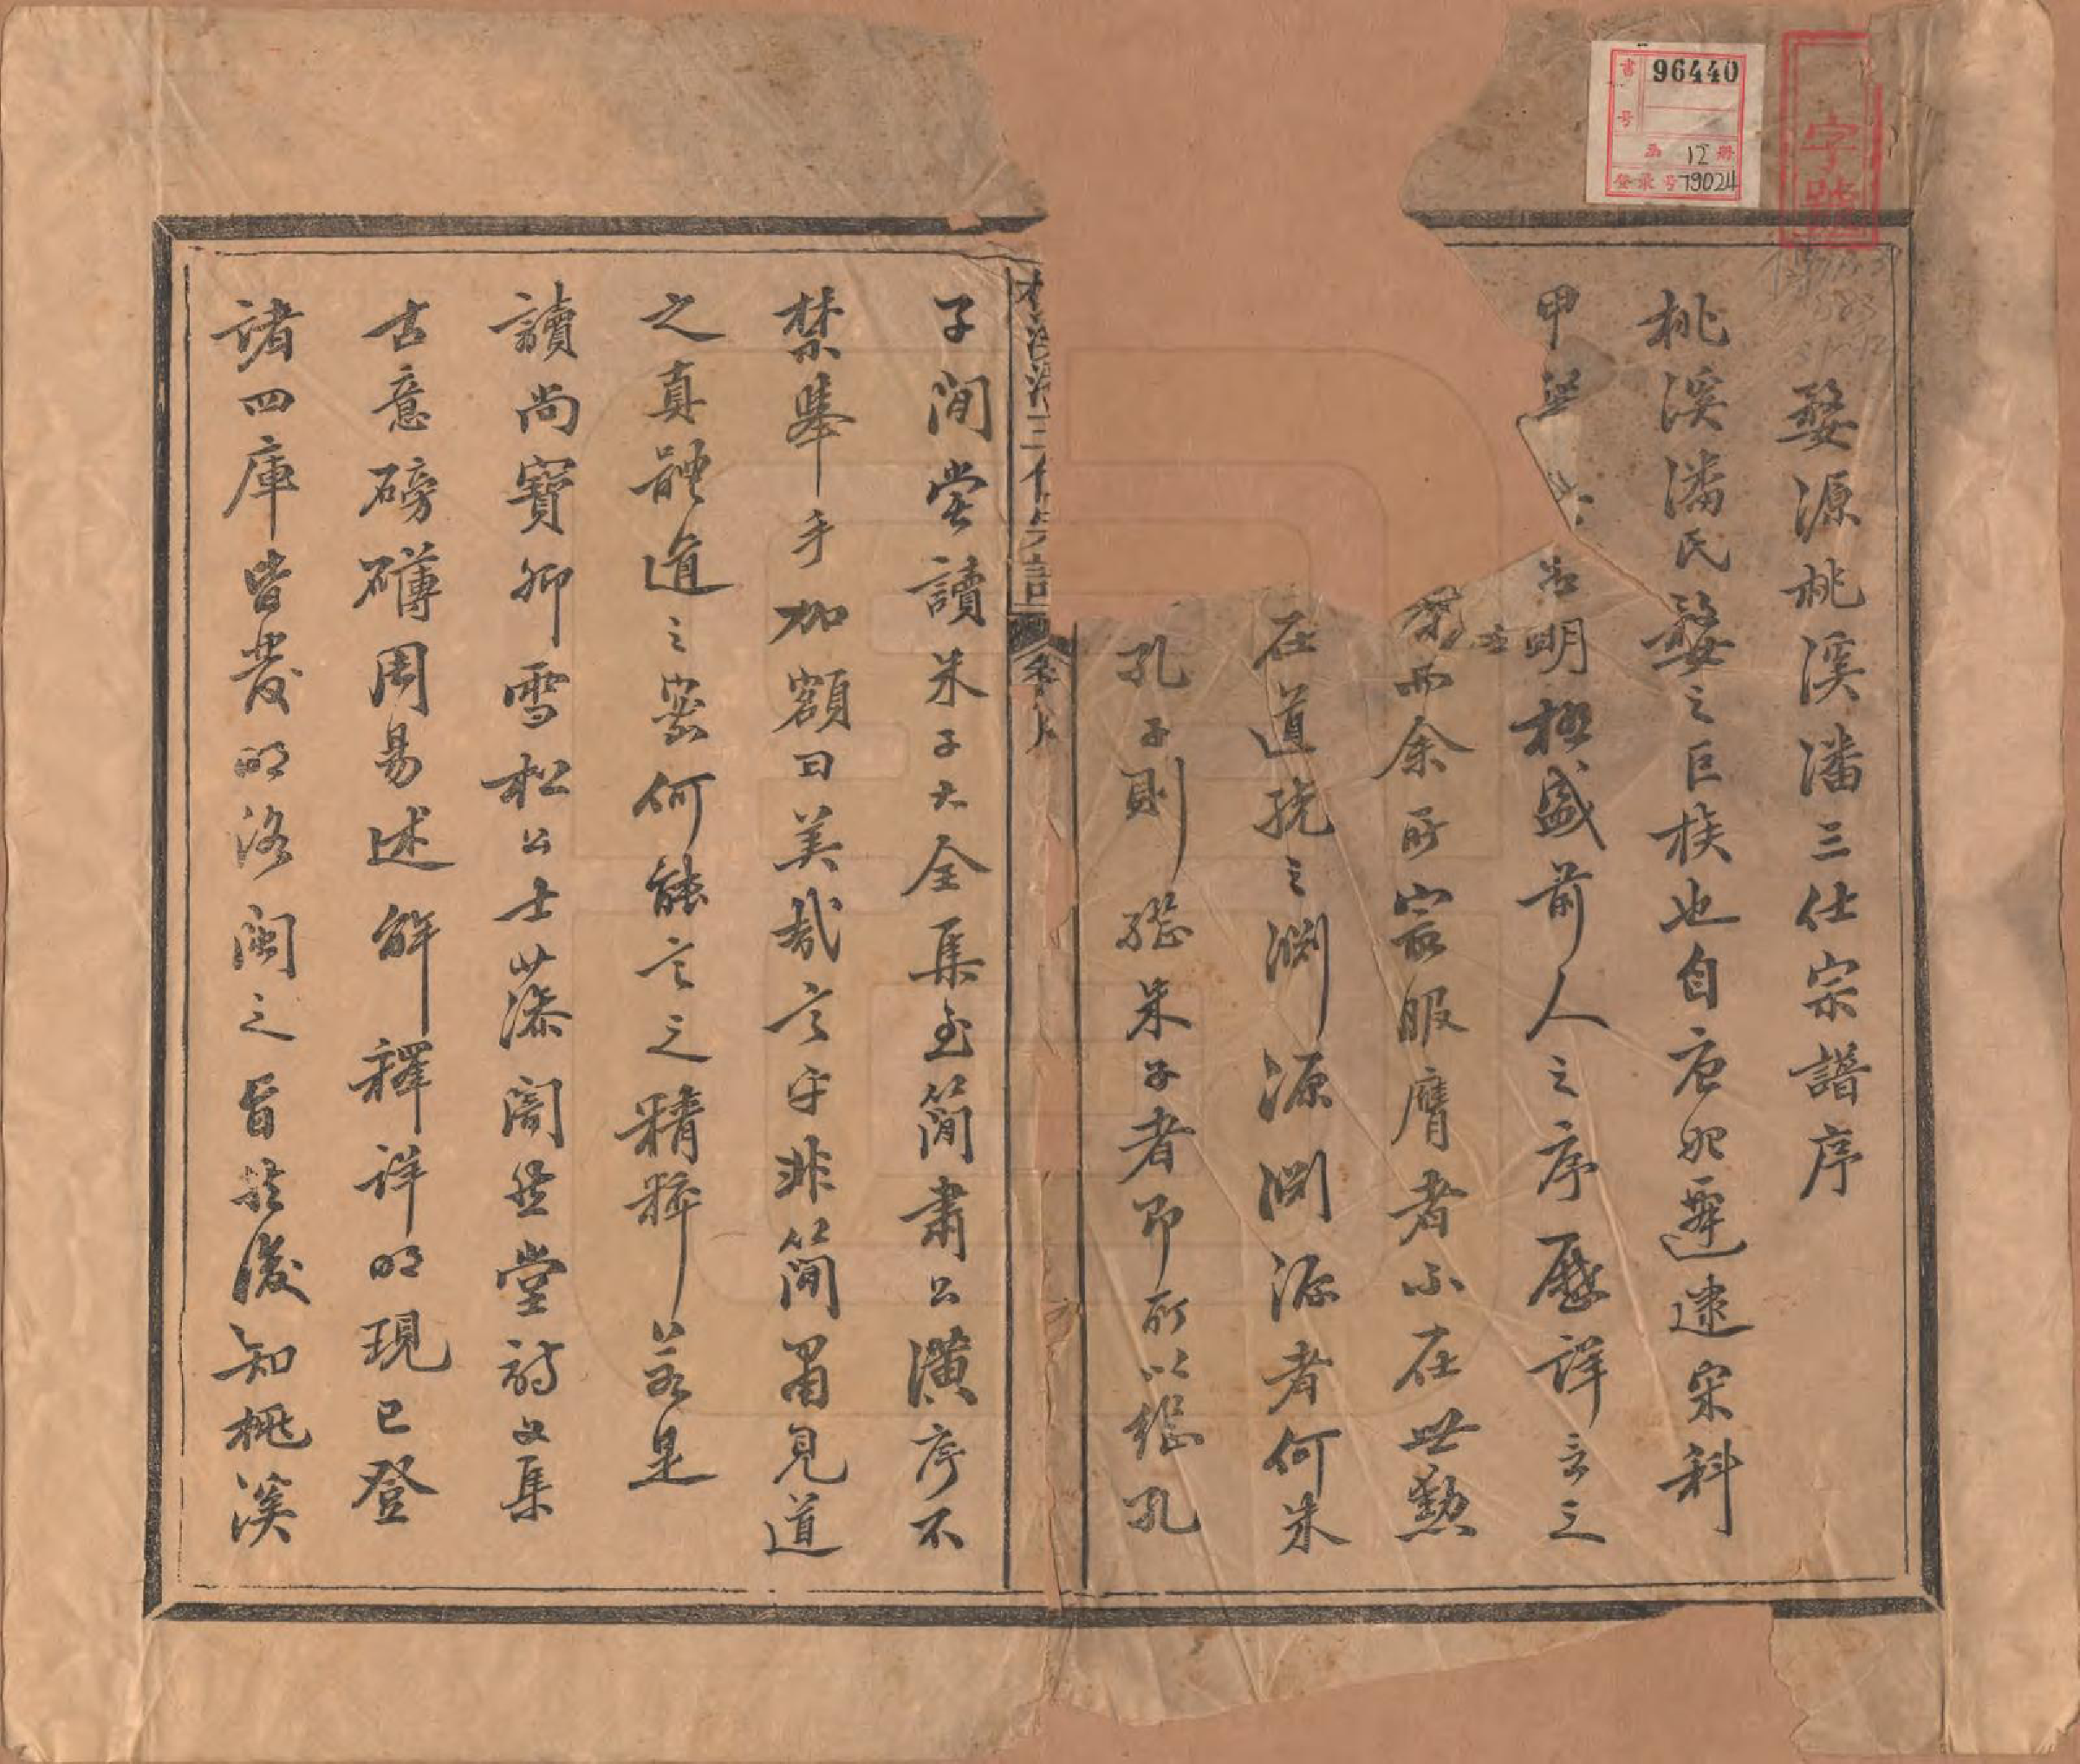 婺源桃溪潘三仕宗譜序
桃溪潘氏婺之巨族也自唐肥遯逮宋科
甲 明極盛前人之序歷詳言之
而余所寂服膺者不在世勲
在道統之渊源渊源者何朱
孔子則繼朱子者即所以繼孔
子间嘗讀朱子大全集至简肅公潢序不
禁舉手加額曰美哉言乎非简畧見道
之真體道之密何能言之精粹若是
讀尚寶卿雪松公士藻闇然堂詩文集
古意磅礴周易述解釋詳明現已登
諸四庫皆發明洛闽之旨於後知桃溪
卷序
書号 96440
函 12 册
登录号 79024
字號